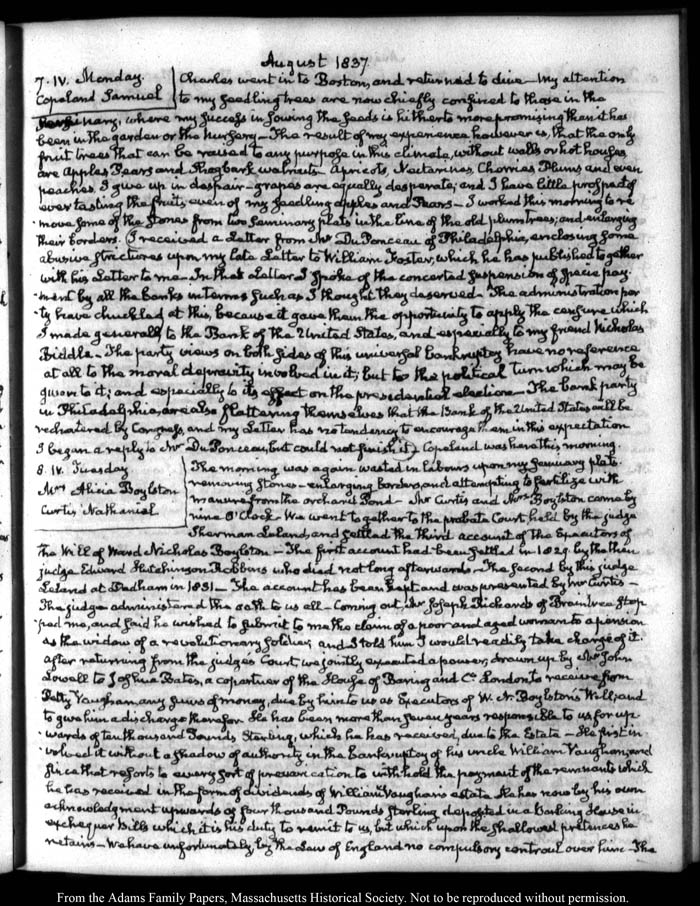 August 1837
7. IV. Monday.
Copeland Samuel
Charles went in to Boston, and returned to dine — My attention
to my seedling trees are now chiefly confined to those in the
Seminary, where my success in sowing the seeds is hitherto more promising than it has
been in the garden or the Nursery — The result of my experience however is, that the only
fruit trees that can be raised to any purpose in this climate, without walls or hot houses,
are Apples Pears and Shagbark walnuts — Apricots, Nectarines, Cherries Plums and even
peaches, I give up in despair — grapes are equally desperate; and I have little prospect of
ever tasting the fruit, even of my seedling apples and Pears — I worked this morning to re
move some of the Stones from two Seminary plats in the line of the old plum trees; and enlarging
their borders. I received a Letter from Mr Du Ponceau of Philadelphia, enclosing some
abusive strictures upon my late Letter to William Foster, which he has published together
with his Letter to me — In that Letter I spoke of the concerted suspension of specie pay-
ment by all the banks in terms such as I thought they deserved — The administration par-
ty have chuckled at this, because it gave them the opportunity to apply the censure which
I made generally to the Bank of the United States, and especially to my friend Nicholas
Biddle — The party views on both sides of this universal bankruptcy have no reference
at all to the moral depravity involved in it; but to the political turn which may be
given to it; and especially to its effect on the presidential election — The bank party
in Philadelphia, are also flattering themselves that the Bank of the United States will be
rechartered by Congress, and my Letter has no tendency to encourage them in this expectation
I began a reply to Mr Du Ponceau, but could not finish it. Copeland was here this morning.
8. IV. Tuesday
Mrs Alicia Boylston
Curtis Nathaniel
The morning was again wasted in labours upon my Seminary plats.
removing Stones — enlarging borders, and attempting to fertilize with
manure from the orchard Pond — Mr Curtis and Mrs Boylston came by
nine O'Clock. We went together to the probate Court, held by the judge
Sherman Leland, and settled the third account of the Executors of
the Will of Ward Nicholas Boylston — The first account had been settled in 1829. by the then
judge Edward Hutchinson Robbins who died not long afterwards — The second by this judge
Leland at Dedham in 1831 — The account has been kept and was presented by Mr Curtis —
The judge administered the oath to us all — Coming out, Mr Joseph Richards of Braintree stop
ped me, and said he wished to submit to me the claim of a poor and aged woman to a pension
as the widow of a revolutionary soldier, and I told him I would readily take charge of it.
After returning from the judges Court, we jointly executed a power, drawn up by Mr John
Lowell to Joshua Bates, a copartner of the House of Baring and Co. London to receive from
Petty Vaughan, any sums of money, due by him to us as Executors of W. N. Boylston's Will; and
to give him a discharge therefor. He has been more than seven years responsible to us for up-
wards of ten thousand Pounds Sterling, which he has received, due to the Estate — He first in-
volved it without a shadow of authority, in the bankruptcy of his uncle William Vaughan, and
since that resorts to every sort of prevarication to withhold the payment of the remnants which
he has received in the form of dividends of William Vaughan's estate. He has now by his own
acknowledgment upwards of four thousand Pounds Sterling deposited in a Banking House in
exchequer Bills which it is his duty to remit to us, but which upon the shallowest pretences he
retains — We have unfortunately by the Law of England no compulsory controul over him — The
From the Adams Family Papers, Massachusetts Historical Society. Not to be reproduced without permission.